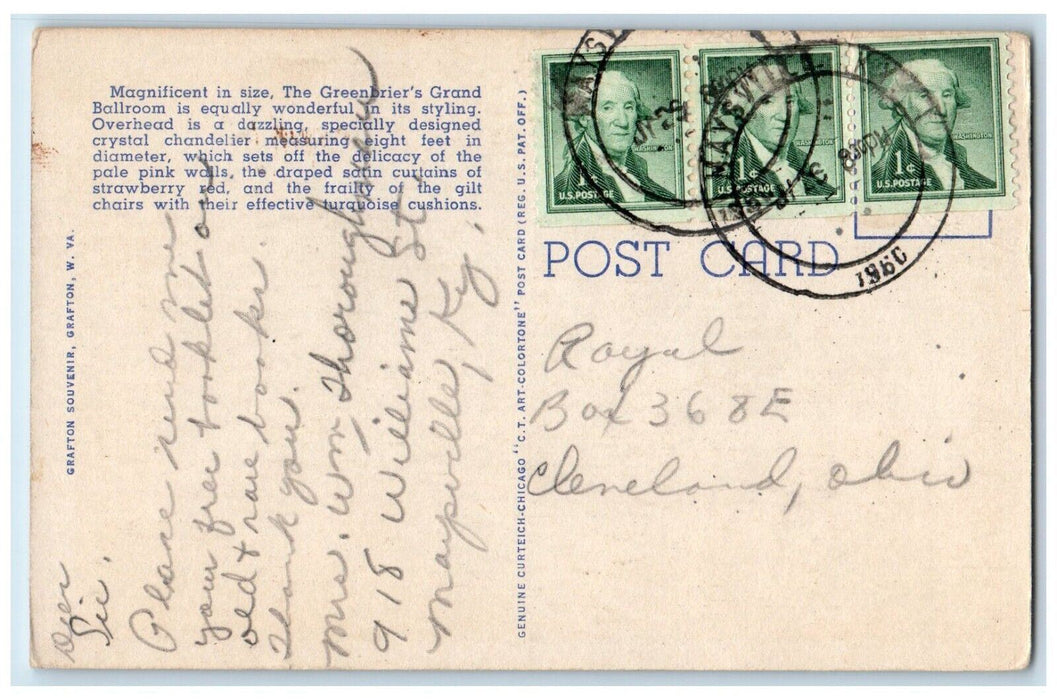 Magnificent in size, The Greenbrier's Grand
Ballroom is equally wonderful in its styling.
Overhead is a dazzling, specially designed
crystal chandelier measuring eight feet in
diameter, which sets off the delicacy of the
pale pink walls, the draped satin curtains of
strawberry red, and the frailty of the gilt
chairs with their effective turquoise cushions.
GRAFTON SOUVENIR, GRAFTON, W. VA.
Dear
Sir.
Please send me
your free booklet on
old + rare books.
Thank you.
Mrs. Wm Thoroughman
918 Williams St.
Maysville, Ky.
GENUINE CURTEICH-CHICAGO "C.T. ART-COLORTONE" POST CARD (REG. U. S. PAT. OFF.)
WASHINGTON
1¢
U.S. POSTAGE
WASHINGTON
1¢
U.S. POSTAGE
WASHINGTON
1¢
U.S. POSTAGE
MAYSVILLE
1960
POST CARD
Royal
Box 368E
Cleveland, Ohio